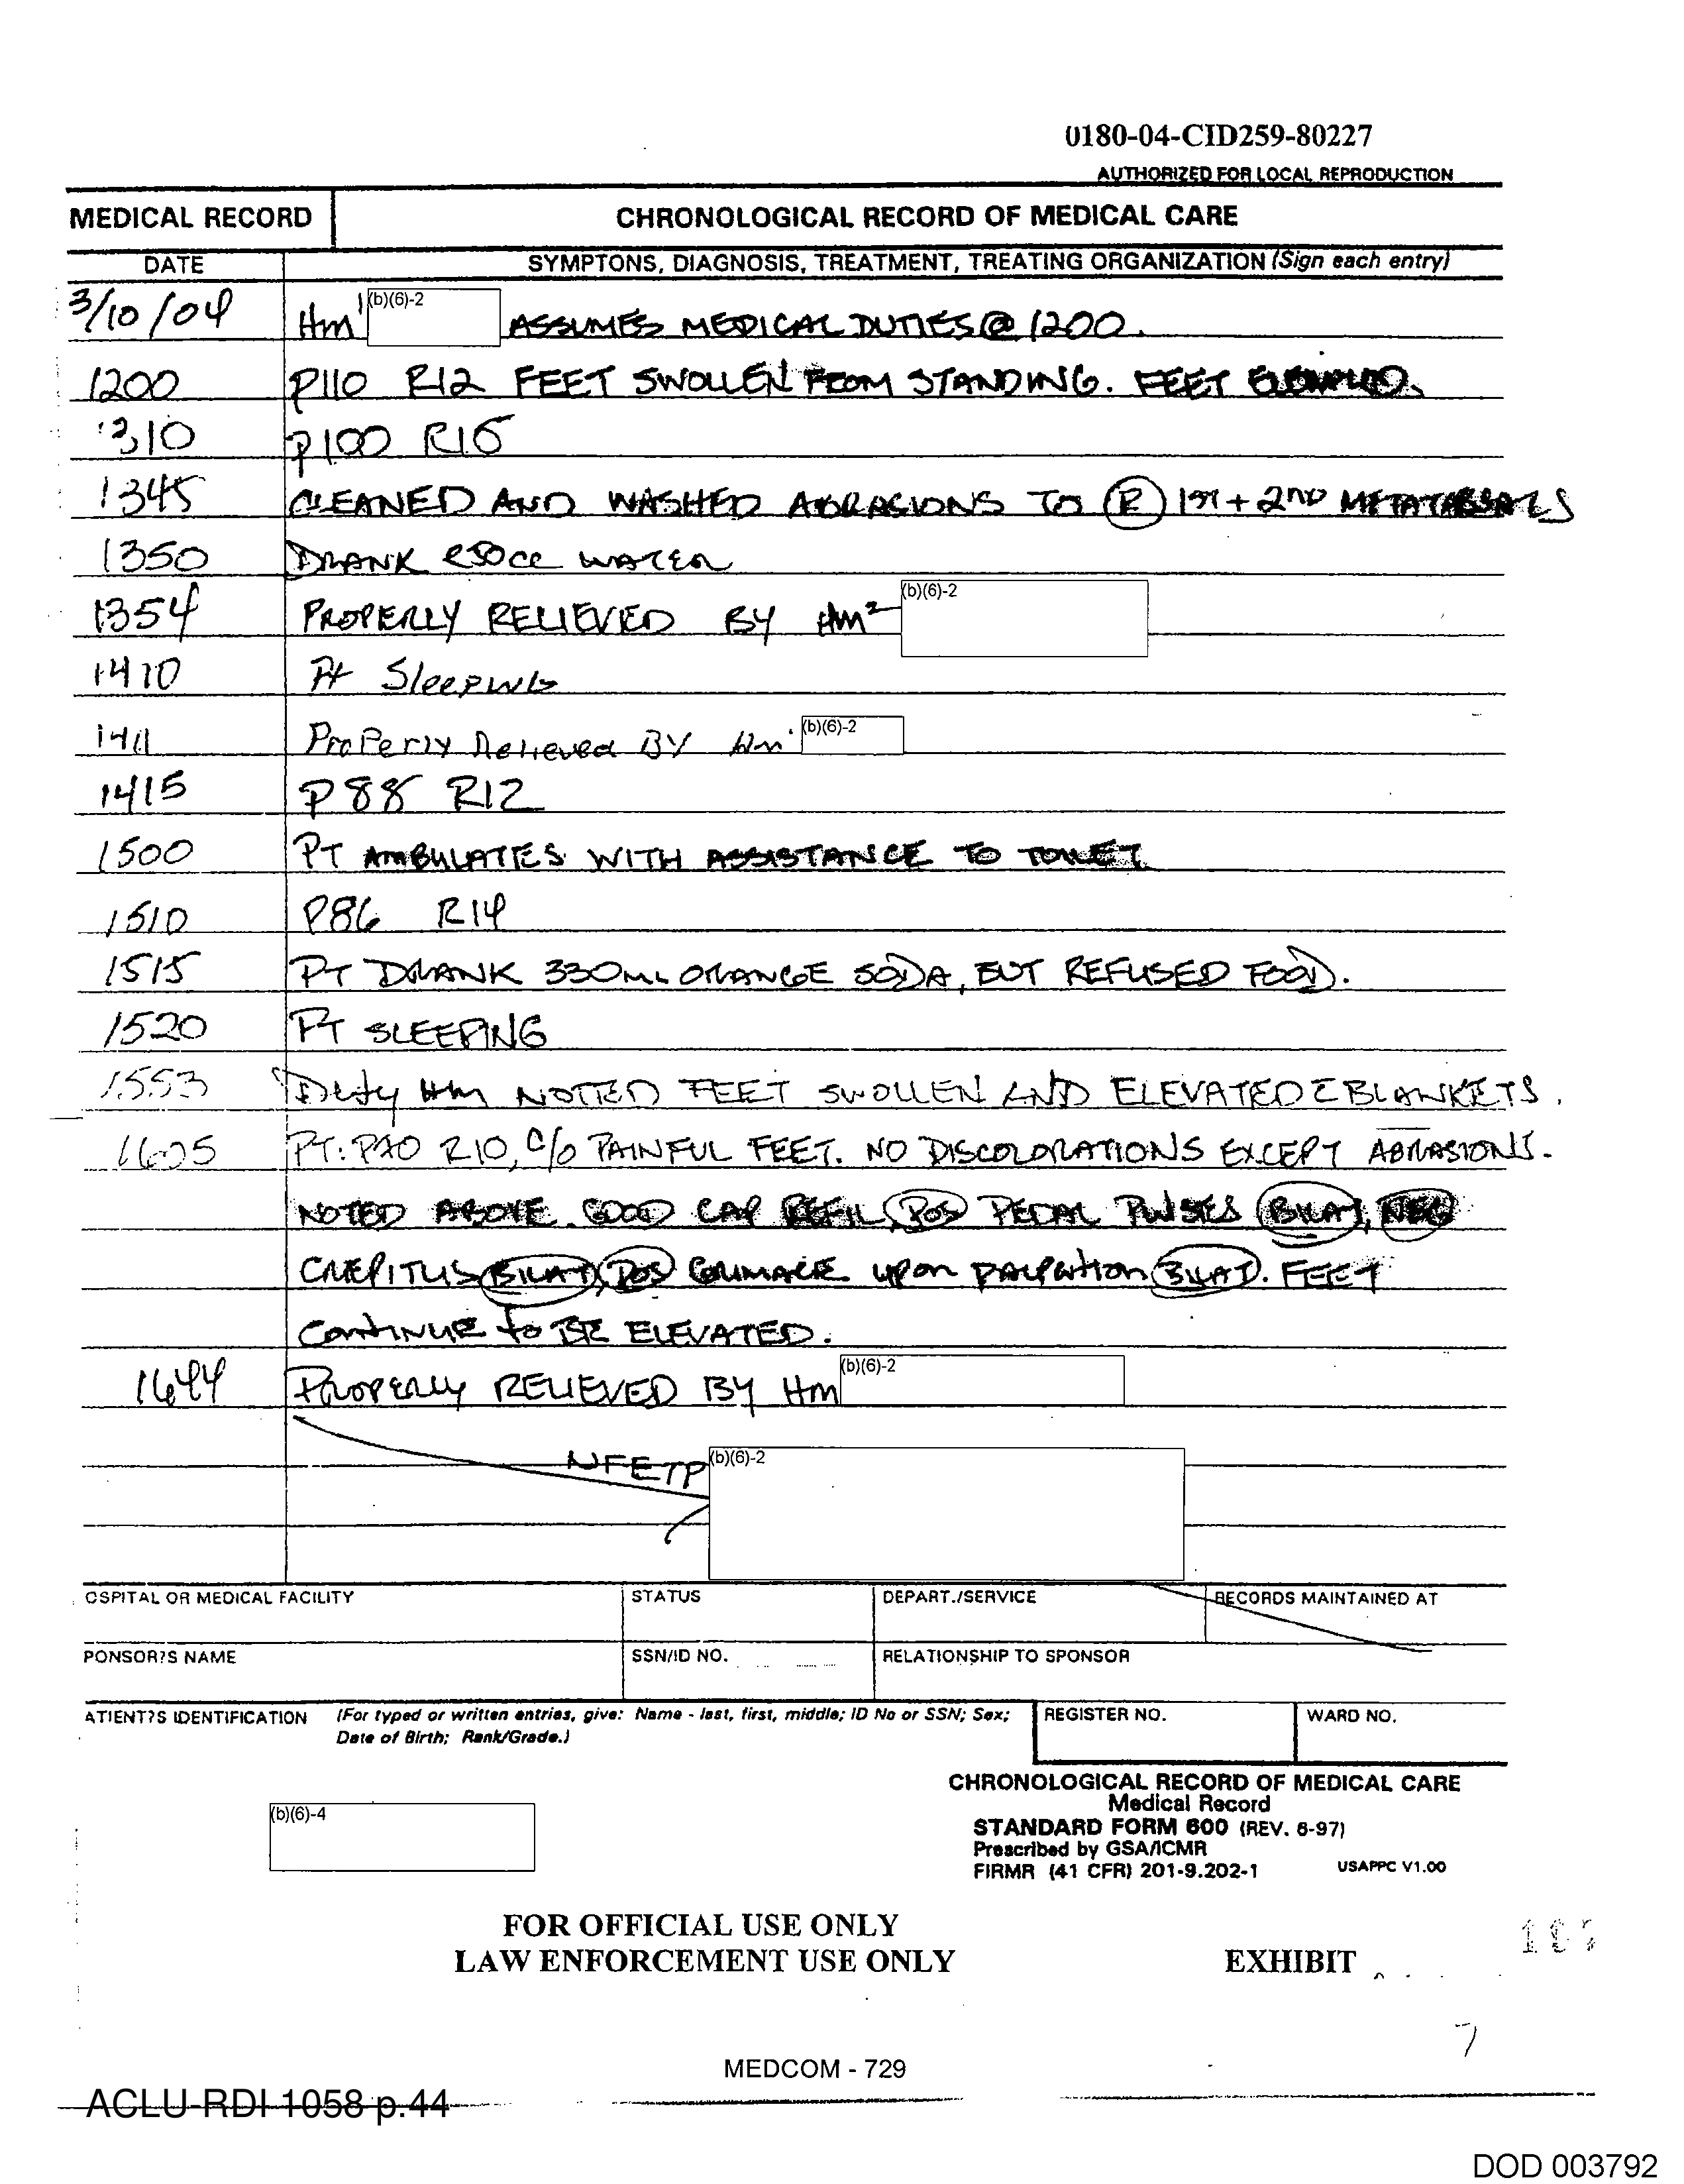 0180-04-CID259-80227
AUTHORIZED FOR LOCAL REPRODUCTION
MEDICAL RECORD CHRONOLOGICAL RECORD OF MEDICAL CARE
DATE SYMPTONS, DIAGNOSIS, TREATMENT, TREATING ORGANIZATION (Sign each entry)
3/10/04 Hm1 (b)(6)-2 ASSUMES MEDICAL DUTIES @ 1200.
1200 P110 R12 FEET SWOLLEN FROM STANDING. FEET
1310 P100 R16
1345 CLEANED AND WASHED ABRASIONS TO (R) 1ST + 2ND METATARSALS
1350 DRANK 250cc WATER
1354 PROPERLY RELIEVED BY HM2 (b)(6)-2
1410 Pt Sleeping
1411 Properly Relieved BY Hm1 (b)(6)-2
1415 P88 R12
1500 PT AMBULATES WITH ASSISTANCE TO TOILET
1510 P86 R14
1515 PT DRANK 330mL ORANGE SODA, BUT REFUSED FOOD.
1520 PT SLEEPING
1553 Duty Hm NOTED FEET SWOLLEN AND ELEVATED C̄ BLANKETS.
1605 PT: R10, C/O PAINFUL FEET. NO DISCOLORATIONS EXCEPT ABRASIONS.
NOTED ABOVE. GOOD CAP REFIL, POS PEDAL PULSES BILAT, NEG
CREPITUS BILAT, POS GRIMACE upon PALPATION BILAT. FEET
CONTINUE to BE ELEVATED.
1644 PROPERLY RELIEVED BY HM (b)(6)-2
NFETP (b)(6)-2
OSPITAL OR MEDICAL FACILITY STATUS DEPART./SERVICE RECORDS MAINTAINED AT
PONSOR?S NAME SSN/ID NO. RELATIONSHIP TO SPONSOR
ATIENT?S IDENTIFICATION (For typed or written entries, give: Name - last, first, middle; ID No or SSN; Sex; REGISTER NO. WARD NO.
Date of Birth; Rank/Grade.)
CHRONOLOGICAL RECORD OF MEDICAL CARE
Medical Record
(b)(6)-4
STANDARD FORM 600 (REV. 6-97)
Prescribed by GSA/ICMR
FIRMR (41 CFR) 201-9.202-1 USAPPC V1.00
FOR OFFICIAL USE ONLY
LAW ENFORCEMENT USE ONLY EXHIBIT
7
MEDCOM - 729
ACLU-RDI 1058 p.44
DOD 003792